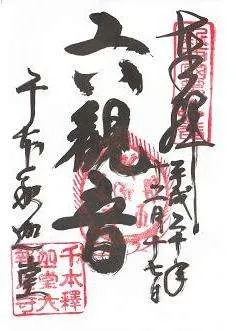 奉拝
平成二十年
二月十七日
六観音
千本釈迦堂
千本釋
迦堂大
報恩寺